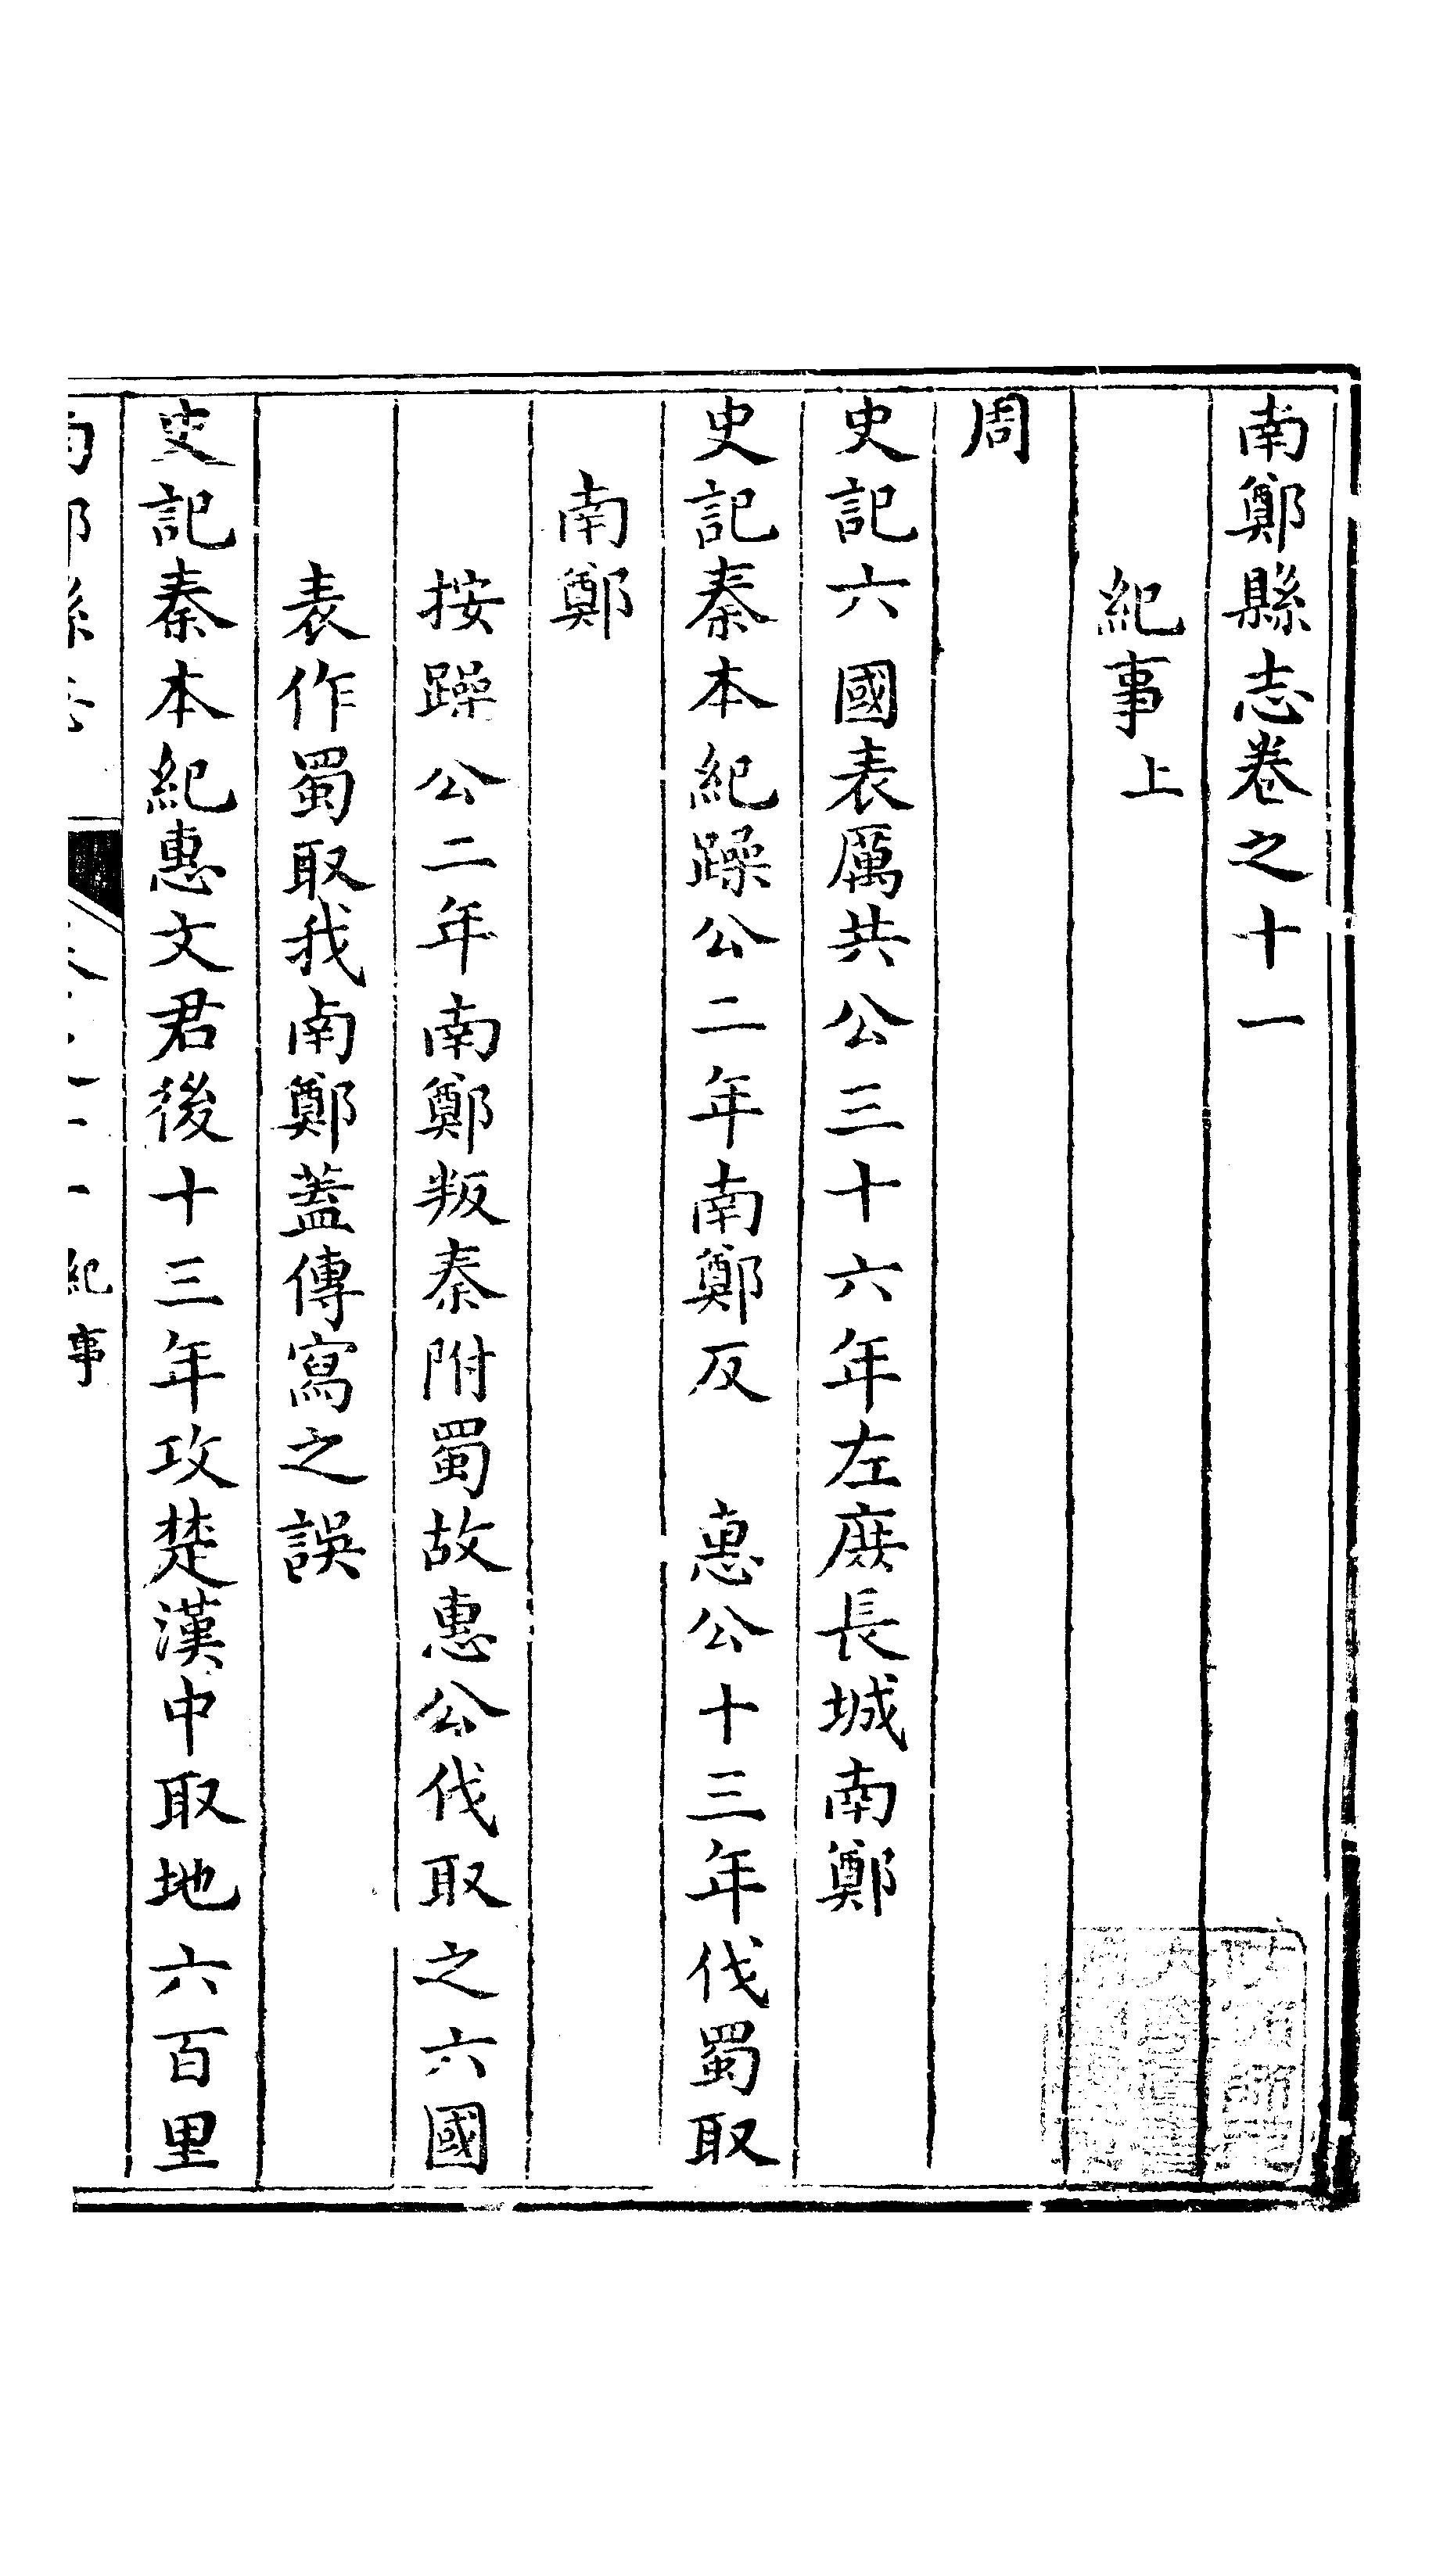 南鄭縣志卷之十一
紀事上
周
史記六國表厲共公三十六年左庶長城南鄭
史記秦本紀躁公二年南鄭反　惠公十三年伐蜀取
南鄭
按躁公二年南鄭叛秦附蜀故惠公伐取之六國
表作蜀取我南鄭蓋傳寫之誤
史記秦本紀惠文君後十三年攻楚漢中取地六百里
紀事